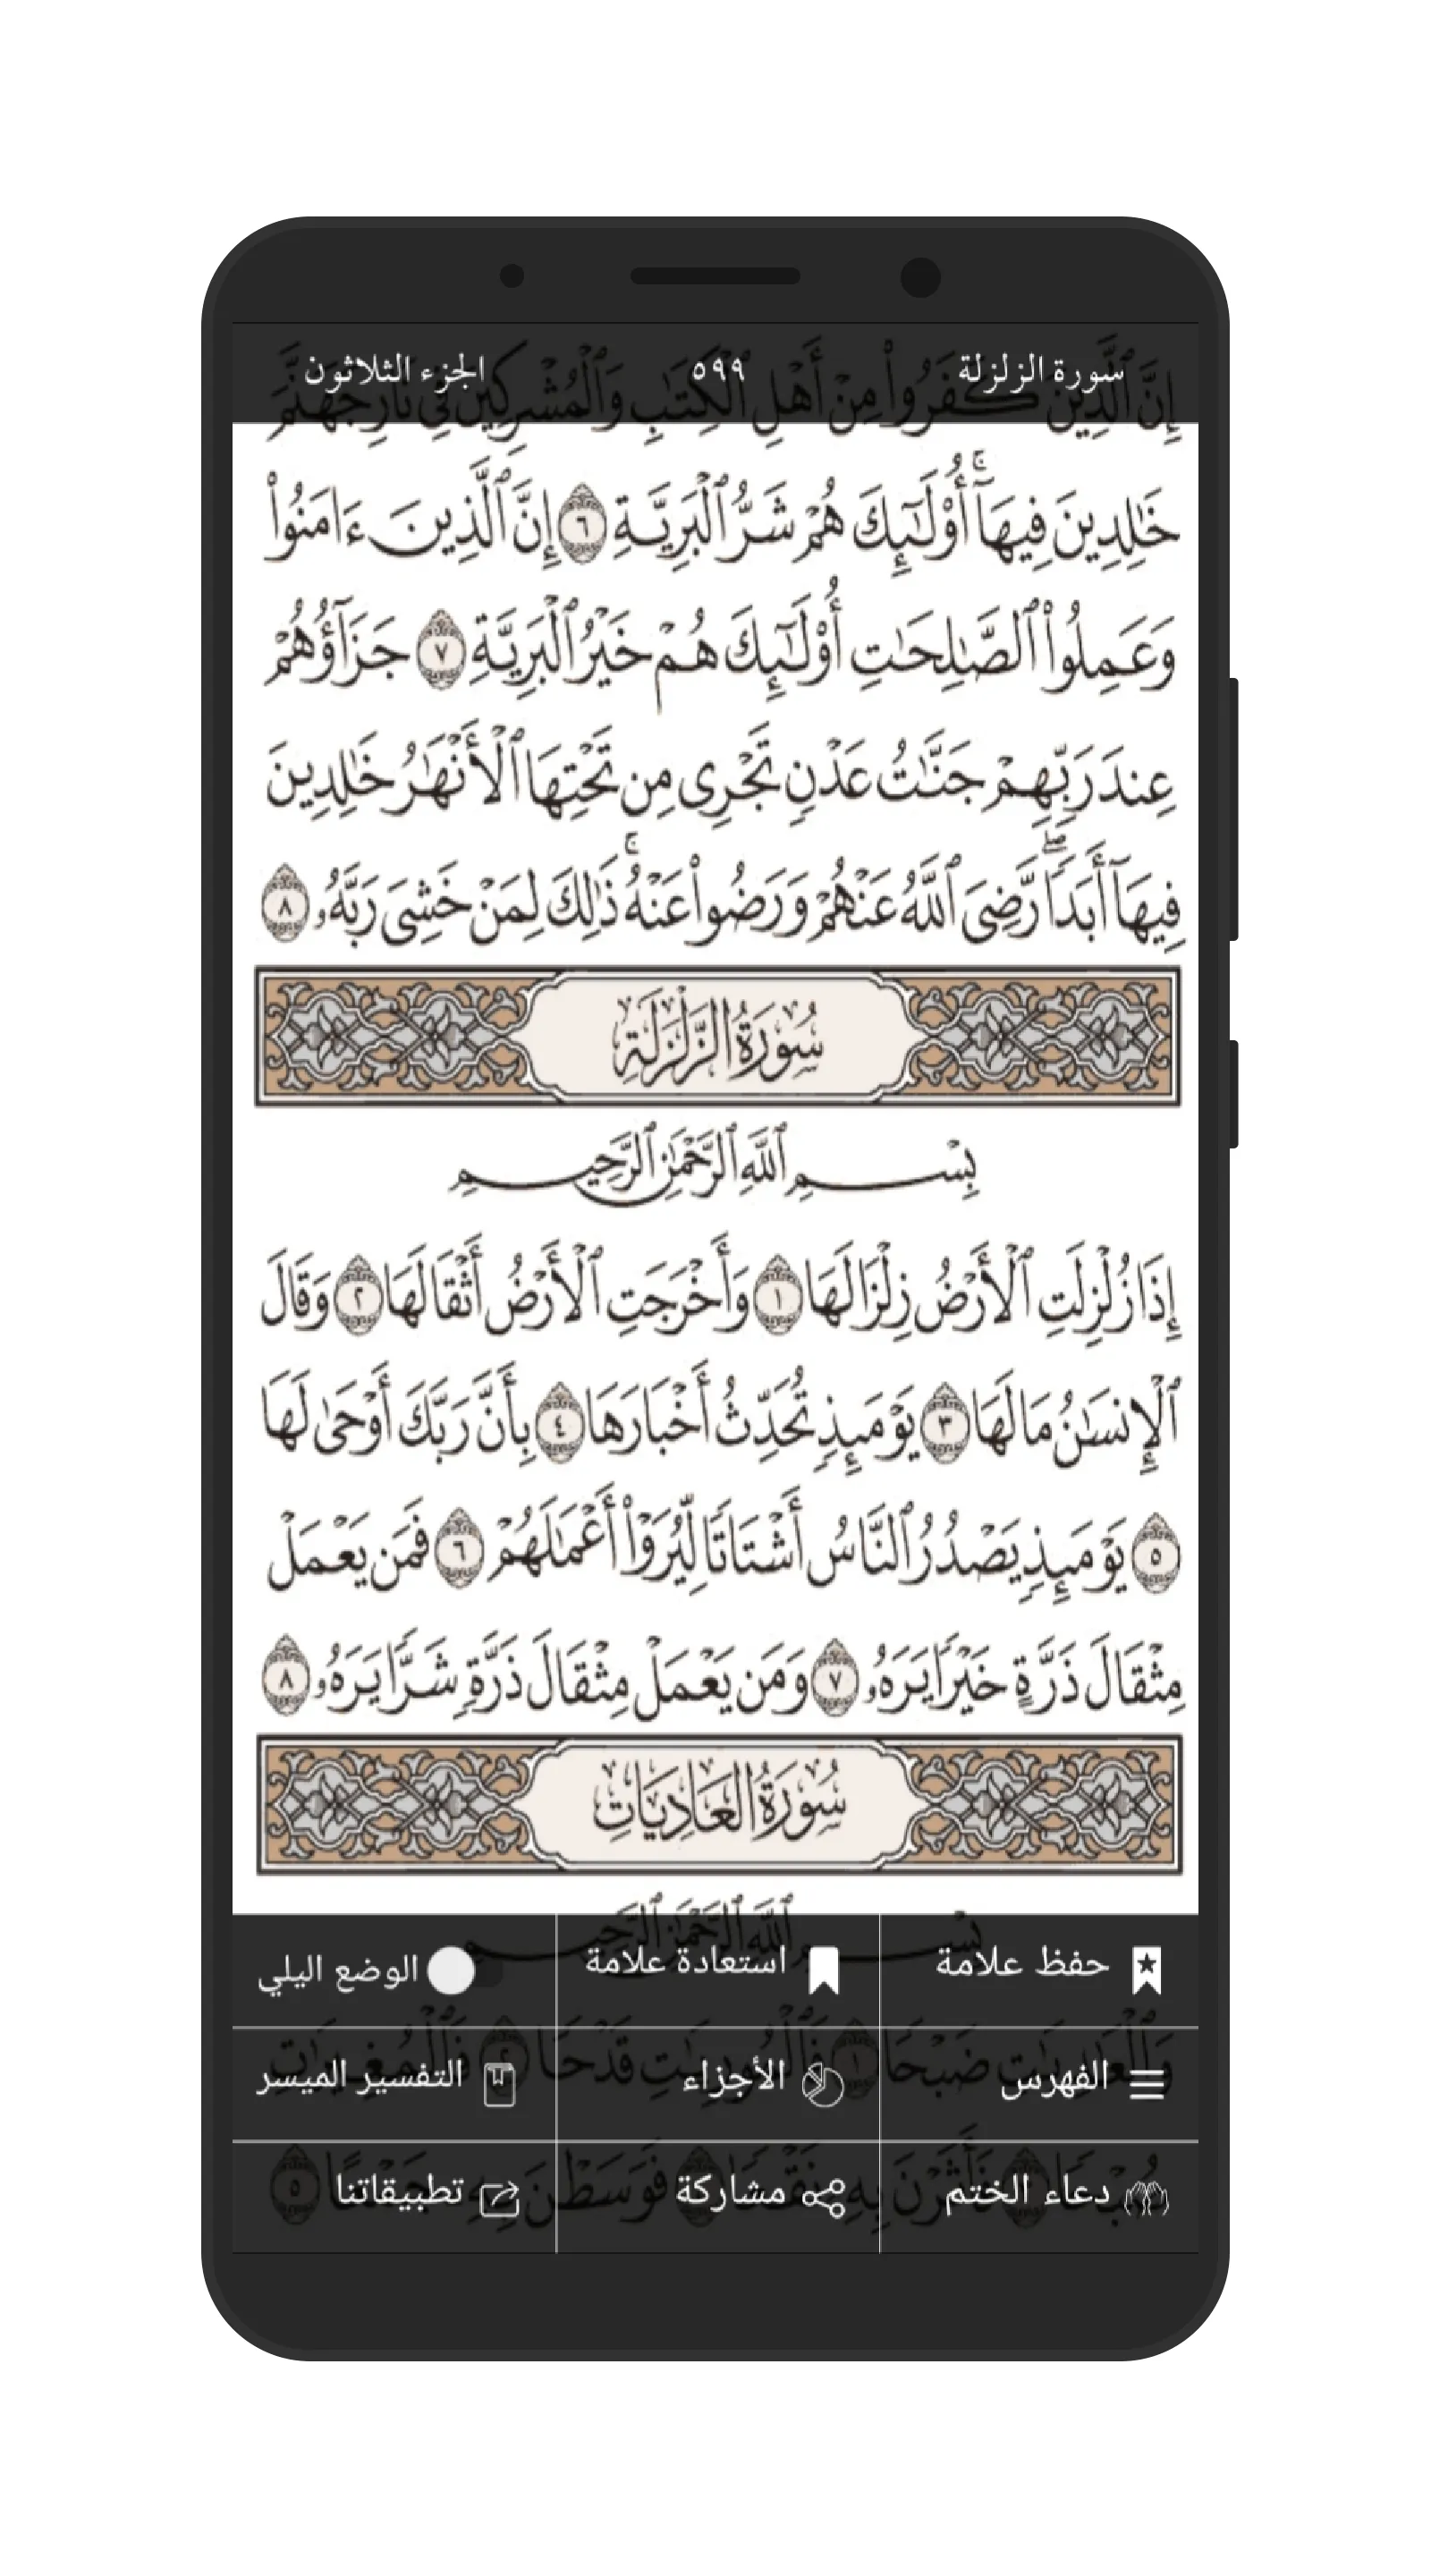 سورة الزلزلة ٥٩٩ الجزء الثلاثون
إِنَّ ٱلَّذِينَ كَفَرُوا۟ مِنْ أَهْلِ ٱلْكِتَٰبِ وَٱلْمُشْرِكِينَ فِى نَارِ جَهَنَّمَ
خَٰلِدِينَ فِيهَآ ۚ أُو۟لَٰٓئِكَ هُمْ شَرُّ ٱلْبَرِيَّةِ ٦ إِنَّ ٱلَّذِينَ ءَامَنُوا۟
وَعَمِلُوا۟ ٱلصَّٰلِحَٰتِ أُو۟لَٰٓئِكَ هُمْ خَيْرُ ٱلْبَرِيَّةِ ٧ جَزَآؤُهُمْ
عِندَ رَبِّهِمْ جَنَّٰتُ عَدْنٍ تَجْرِى مِن تَحْتِهَا ٱلْأَنْهَٰرُ خَٰلِدِينَ
فِيهَآ أَبَدًا ۖ رَّضِىَ ٱللَّهُ عَنْهُمْ وَرَضُوا۟ عَنْهُ ۚ ذَٰلِكَ لِمَنْ خَشِىَ رَبَّهُۥ ٨
سُورَةُ الزَّلْزَلَةِ
بِسْمِ ٱللَّهِ ٱلرَّحْمَٰنِ ٱلرَّحِيمِ
إِذَا زُلْزِلَتِ ٱلْأَرْضُ زِلْزَالَهَا ١ وَأَخْرَجَتِ ٱلْأَرْضُ أَثْقَالَهَا ٢ وَقَالَ
ٱلْإِنسَٰنُ مَا لَهَا ٣ يَوْمَئِذٍ تُحَدِّثُ أَخْبَارَهَا ٤ بِأَنَّ رَبَّكَ أَوْحَىٰ لَهَا
٥ يَوْمَئِذٍ يَصْدُرُ ٱلنَّاسُ أَشْتَاتًا لِّيُرَوْا۟ أَعْمَٰلَهُمْ ٦ فَمَن يَعْمَلْ
مِثْقَالَ ذَرَّةٍ خَيْرًا يَرَهُۥ ٧ وَمَن يَعْمَلْ مِثْقَالَ ذَرَّةٍ شَرًّا يَرَهُۥ ٨
سُورَةُ العَادِيَاتِ
بِسْمِ ٱللَّهِ ٱلرَّحْمَٰنِ ٱلرَّحِيمِ
حفظ علامة استعادة علامة الوضع اليلي
الفهرس الأجزاء التفسير الميسر
دعاء الختم مشاركة تطبيقاتنا